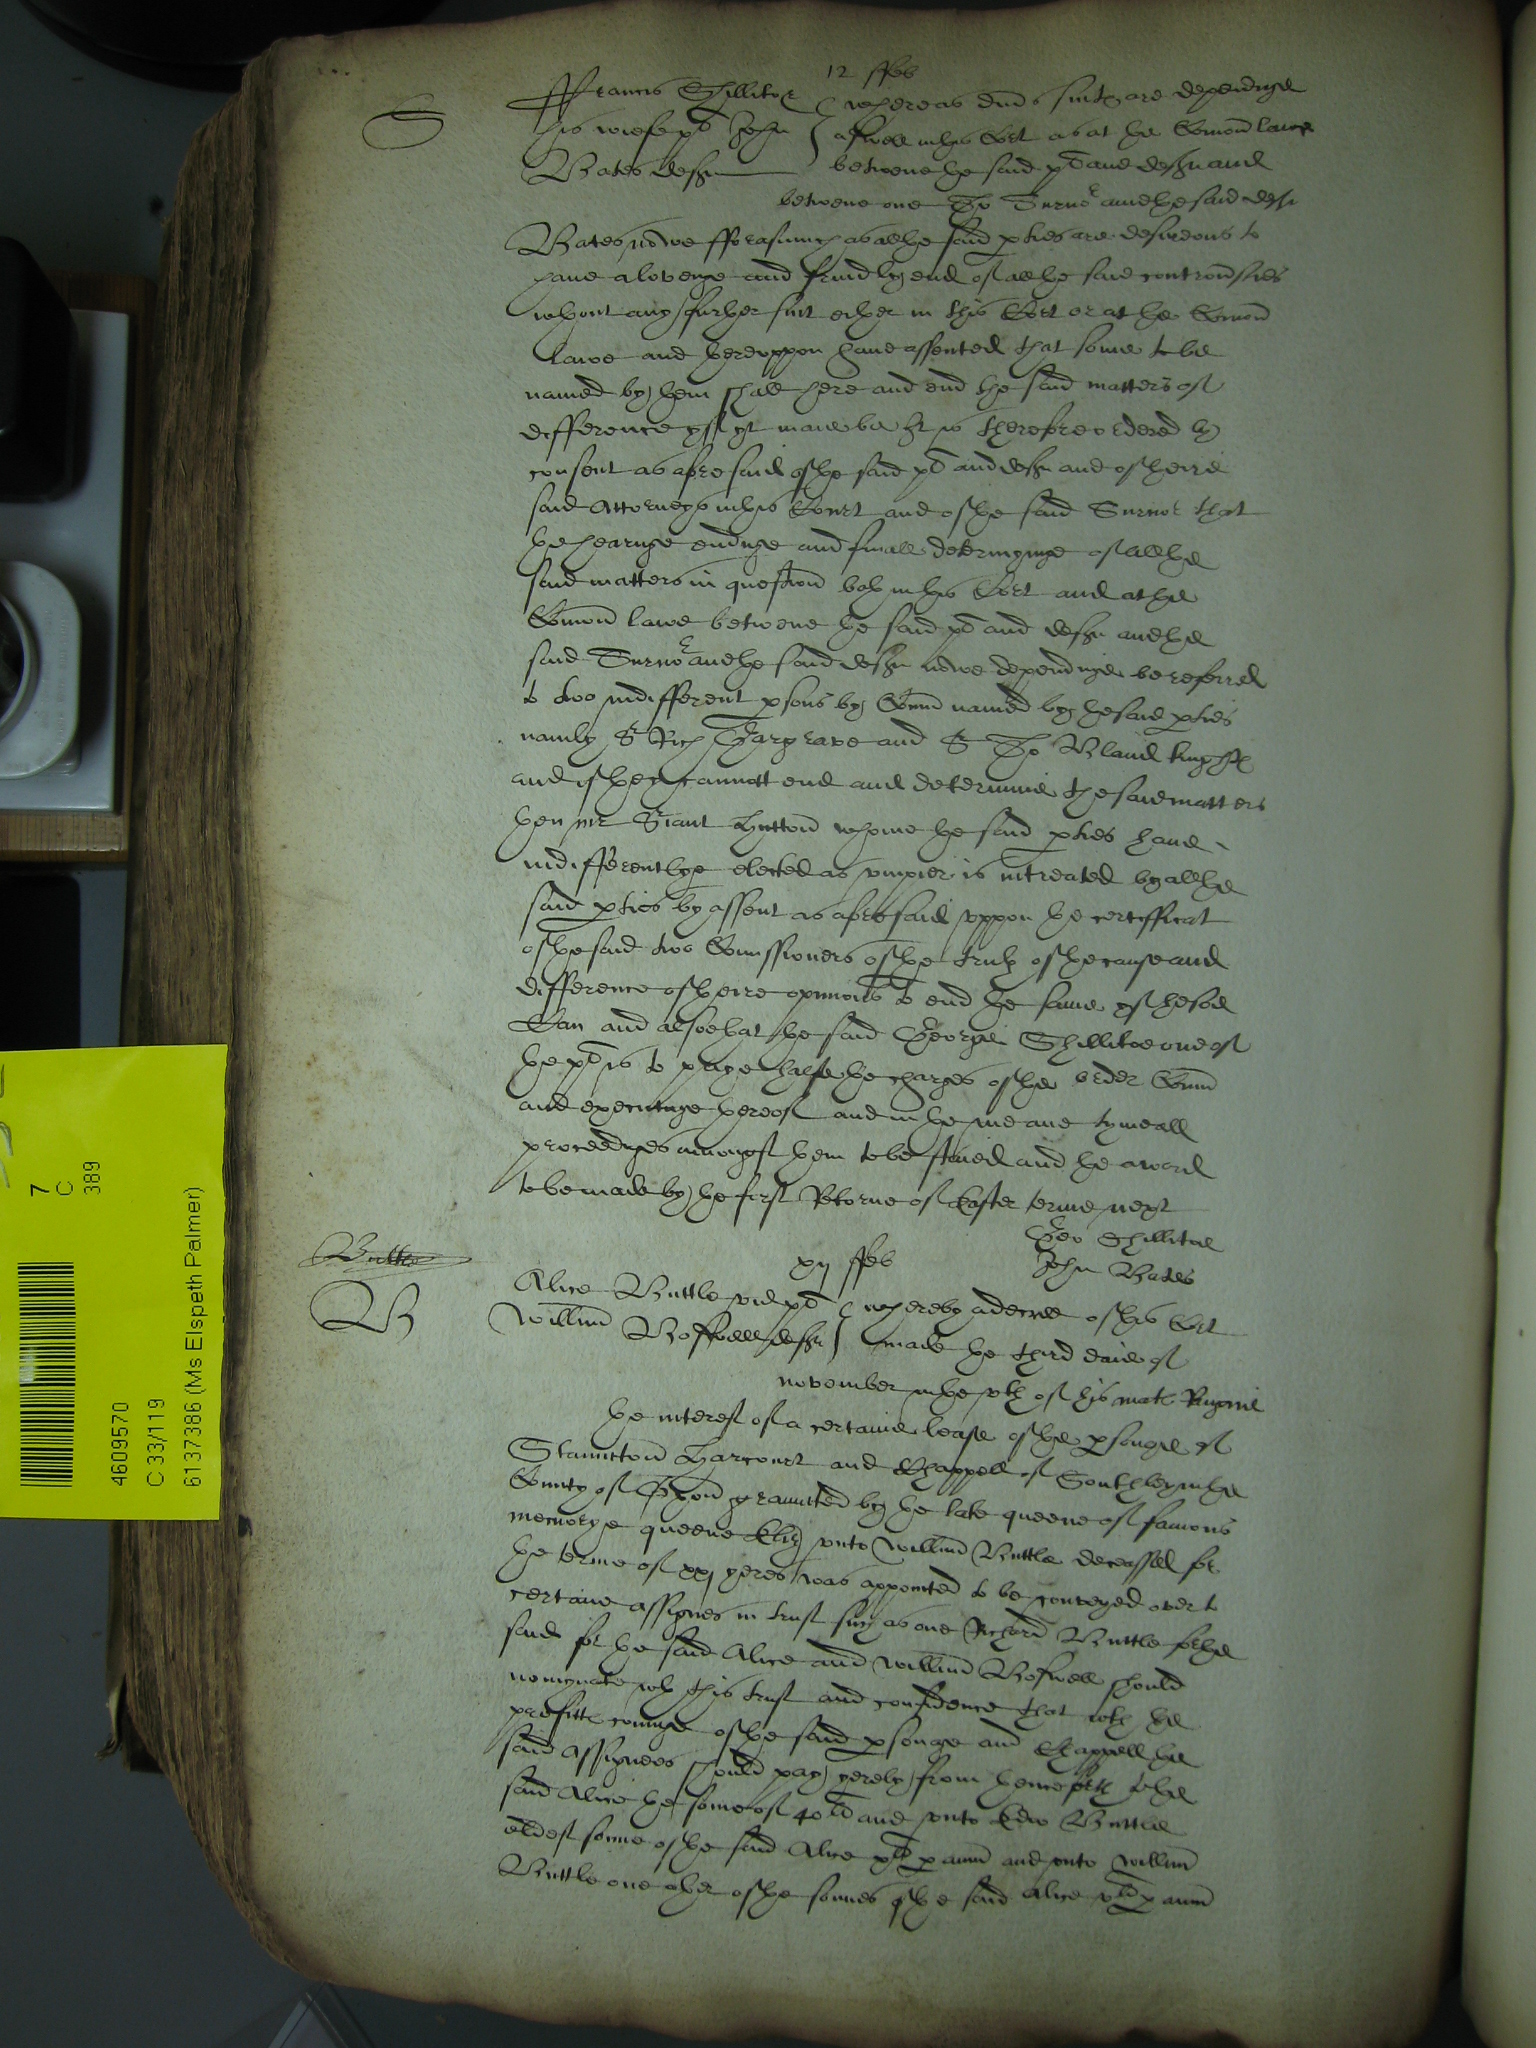 12 ffeb
S
ffrancis Shillitoe
his wiefe pl John
Bates deft
whereas divs suits are dependinge
aswell in this Cort as at the Comon lawe
betwene the said pl and deft and
betwene one Tho Turnor and the said deft
Bates nowe fforasmuch as all the said pties are desireous to
have a lovinge and frindly end of all the said controvsies
wthout any further suit either in this Cort or at the Comon
lawe and thereuppon have assented that some to be
named by them shall here and end the said matters of
difference yf yt maie be It is therefore ordered by
consent as aforesaid of the said pl and deft and of theire
said Attorneys in this Court and of the said Turnor that
the hearinge endinge and finall determyninge of all the
said matters in question both in this Cort and at the
Comon lawe betwene the said pl and deft and the
said Turnor and the said deft nowe dependinge be referred
to two indifferent psons by Comn named by the said pties
namly Sr Rich Hargrave and Sr Tho Bland knights
and if they cannott end and determine the said matters
then mr Siant Hutton whome the said pties have
indifferentlye elected as umpier is intreated by all the
said pties by assent as aforesaid uppon the certifficat
of the said two Comissioners of the truth of the cause and
difference of theire opinions to end the same yf he soe
Can and alsoe that the said George Shillitoe one of
the pl is to paye halfe the charges of the order Comn
and executinge thereof and in the meane tyme all
proceedings amongst them to be staied and the award
to be made by the first Retorne of Easter terme next
Geo Shillitoe
John Bates
Buttle
B
xij ffeb
Alice Buttle vid pl
Willm Boswell deft
whereby a decree of this Cort
made the third daie of
november in the vth of his mats Raigne
the interest of a certaine lease of the psonage of
Staunton Harcourt and Chappell of Southley in the
County of Oxon graunted by the late queene of famous
memorye queene Eliz unto Willm Buttle deceassed for
the terme of xxj yeres was appointed to be conveyed over to
certaine assignes in trust such as one Richard Buttle for the
said for the said Alice and Willm Boswell should
nomynate wth this trust and confidence that wth the
profitts cominge of the said psonage and Chappell the
said Assignees should pay yerely from henceforth to the
said Alice the some of 40 li and unto Edw Buttle
eldest sonne of the said Alice xli p annu and unto Willm
Buttle one other of the sonnes of the said Alice vli p annu
7
C
389
4609570
C 33/119
6137386 (Ms Elspeth Palmer)